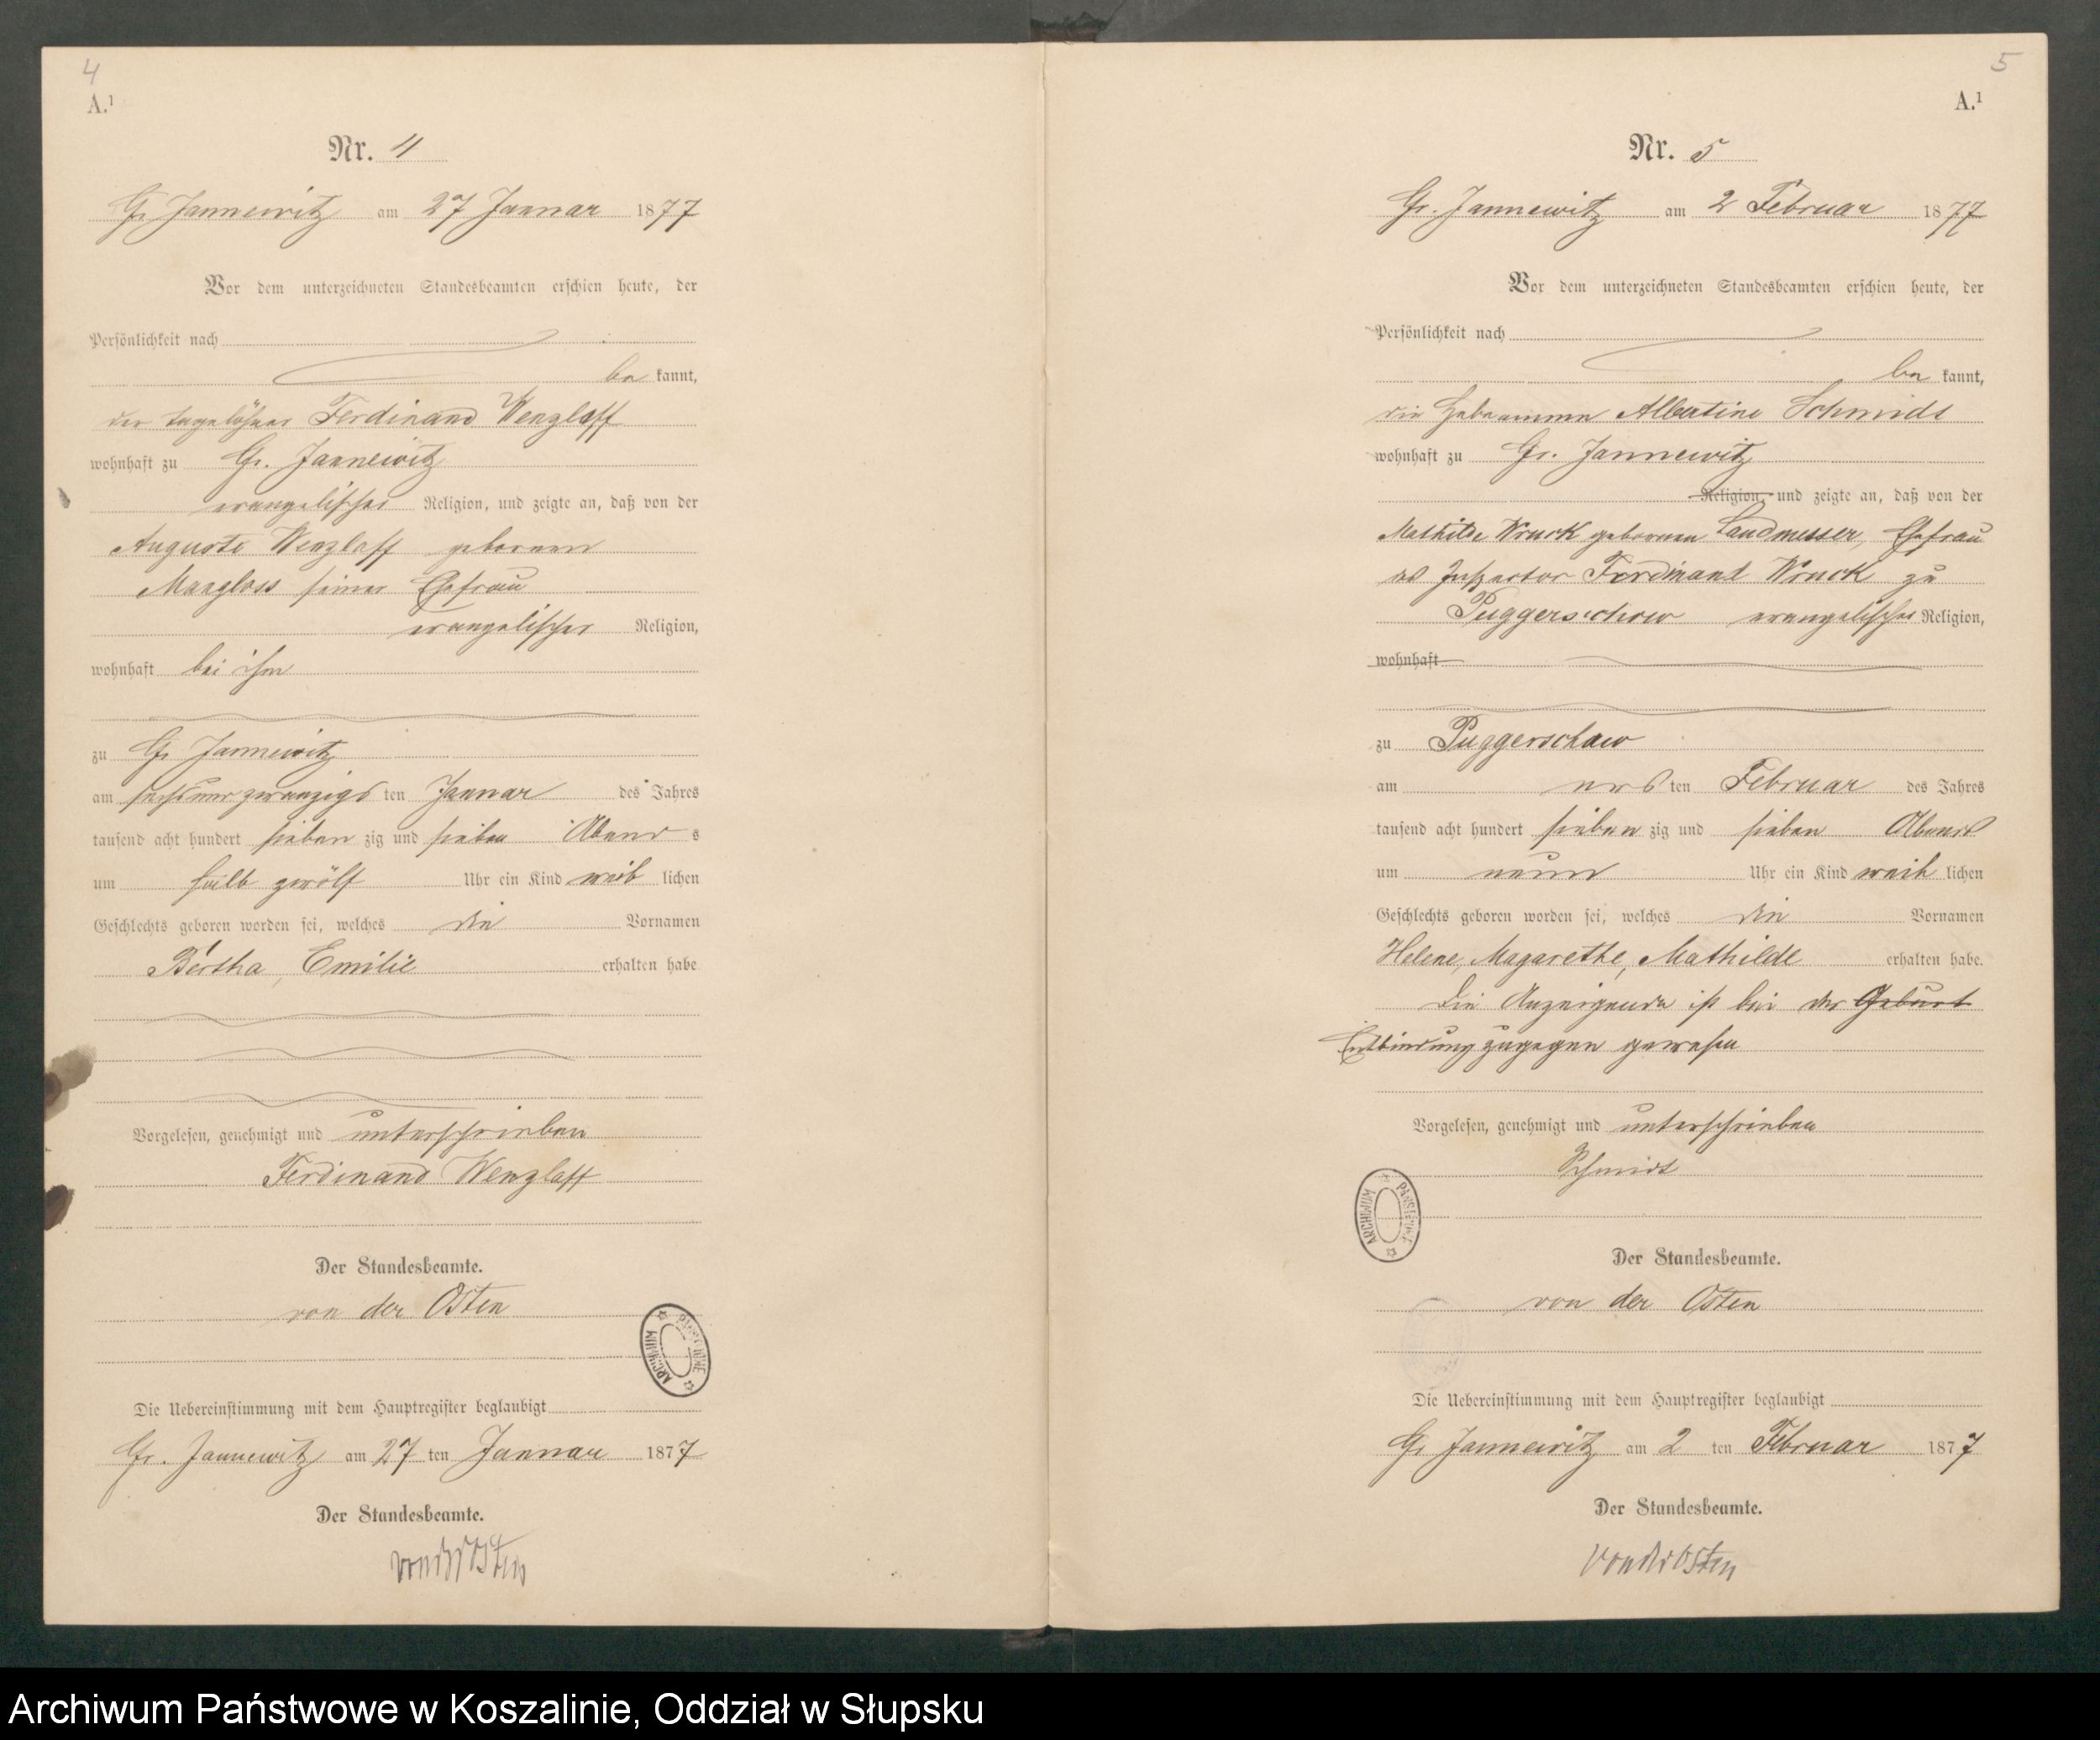 4
A.¹
Nr. 4
Gr. Jannewitz am 27 Januar 1877
Vor dem unterzeichneten Standesbeamten erschien heute, der
Persönlichkeit nach
be kannt,
der Tagelöhner Ferdinand Wenzlaff
wohnhaft zu Gr. Jannewitz
evangelischer Religion, und zeigte an, daß von der
Auguste Wenzlaff geborenen
seiner Ehefrau
evangelischer Religion,
wohnhaft bei ihm
zu Gr. Jannewitz
am sechsundzwanzigs ten Januar des Jahres
tausend acht hundert sieben zig und sieben Abend s
um halb zwölf Uhr ein Kind weib lichen
Geschlechts geboren worden sei, welches die Vornamen
Bertha, Emilie erhalten habe
Vorgelesen, genehmigt und unterschrieben
Ferdinand Wenzlaff
Der Standesbeamte.
von der Osten
Die Uebereinstimmung mit dem Hauptregister beglaubigt
Gr. Jannewitz am 27 ten Januar 1877
Der Standesbeamte.
von der Osten
ARCHIWUM PAŃSTWOWE
5
A.¹
Nr. 5
Gr. Jannewitz am 2 Februar 1877
Vor dem unterzeichneten Standesbeamten erschien heute, der
Persönlichkeit nach
be kannt,
die Hebeamme Albertine Schmidt
wohnhaft zu Gr. Jannewitz
Religion, und zeigte an, daß von der
Mathilde Wruck geborenen Landmesser, Ehefrau
des Inspector Ferdinand Wruck zu
Puggerschow evangelischer Religion,
wohnhaft
zu Puggerschow
am ers ten Februar des Jahres
tausend acht hundert sieben zig und sieben Abends
um neun Uhr ein Kind weib lichen
Geschlechts geboren worden sei, welches die Vornamen
Helene, Magarethe, Mathilde erhalten habe.
Die Anzeigende ist bei der Geburt
Entbindung zugegen gewesen
Vorgelesen, genehmigt und unterschrieben
Schmidt
ARCHIWUM PAŃSTWOWE
Der Standesbeamte.
von der Osten
Die Uebereinstimmung mit dem Hauptregister beglaubigt
Gr. Jannewitz am 2 ten Februar 1877
Der Standesbeamte.
von der Osten
Archiwum Państwowe w Koszalinie, Oddział w Słupsku